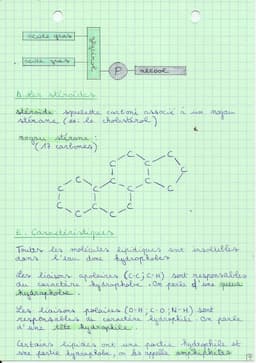 acide gras
acide gras
glycérol
P
alcool
D. Les stéroïdes
stéroïde : squelette carboné associé à un noyau
stérane (ex : le cholestérol)
noyau stérane :
(17 carbones)
C C C C C C C C C C C C C C C C C
E. Caractéristiques
Toutes les molécules lipidiques sont insolubles
dans l'eau donc hydrophobes
Les liaisons apolaires (C-C ; C-H) sont responsables
du caractère hydrophobe. On parle d'une queue
hydrophobe.
Les liaisons polaires (O-H ; C-O ; N-H) sont
responsables du caractère hydrophile. On parle
d'une tête hydrophile.
Certains lipides ont une partie hydrophile et
une partie hydrophobe, on les appelle amphiphiles